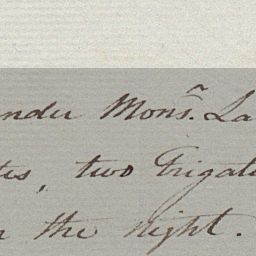 nder Mons.r La
tes, two Frigat
n the Night.